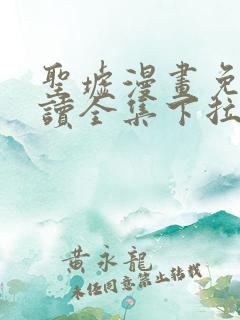 聖墟漫畫免
讀全集下拉
黃永龍
未経同意禁止转载